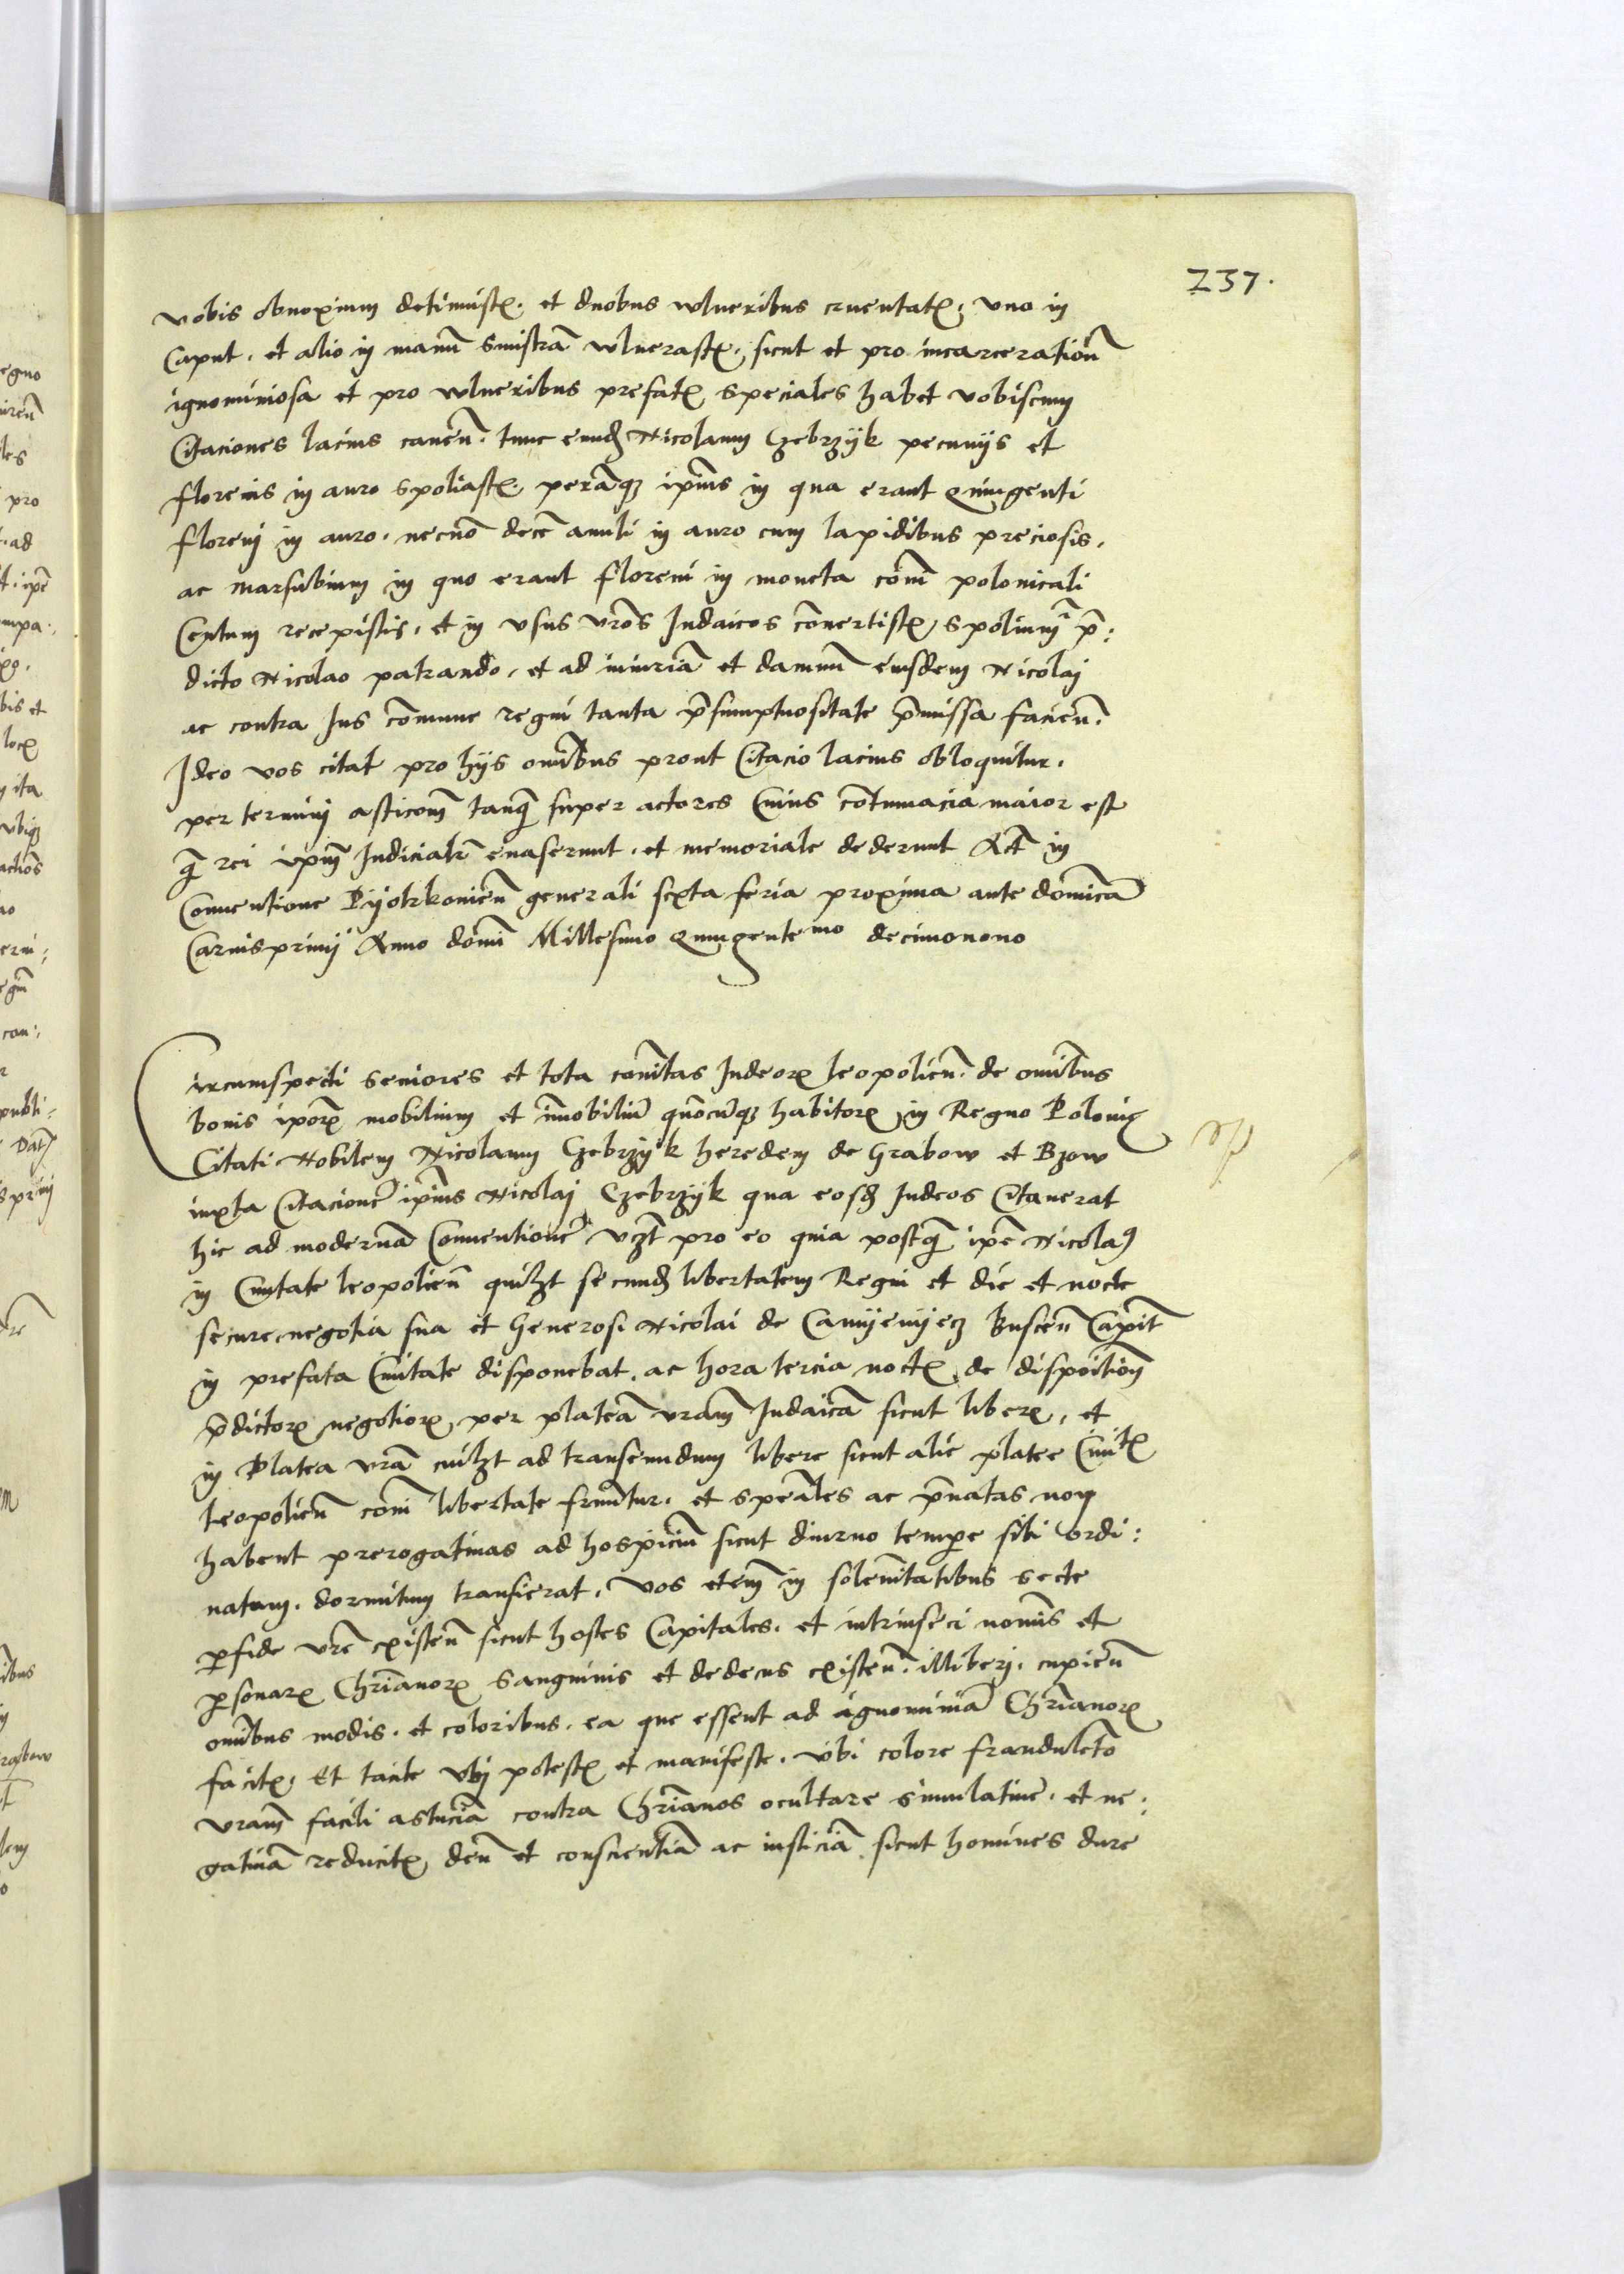 237.
vobis obnoxium detinuistis. et duobus vulneribus cruentatis, vno in
Caput. et alio in manum sinistram vulnerastis, sicut et pro incarceration
ignominiosa et pro vulneribus prefatis speciales habet vobiscum
Citaciones lacius canen. tunc eund Nicolaum Czebrzyk pecunijs et
florenis in auro spoliastis. peramq ipius in qua erant Quingenti
floreni in auro. necno dece anuli in auro cum lapidibus preciosis.
ac marsubium in quo erant floreni in moneta comi polonicali
Centum recepistis. et in vsus vros Judaicos convertistis, spolium p:
dicto Nicolao patrando. et ad iniuria et damnu eiusdem Nicolai
ac contra Jus comune regni tanta psumptuositate pmissa facien.
Ideo vos citat pro hijs omibus prout Citacio lacius obloquitur.
per termini astitionem tanq super actores Cuius contumacia maior est
q rei ipm Judicialr euaserunt. et memoriale dederunt Act in
Conuentione Pyotrkouien generali sexta feria proxima ante dominica
Carnisprivij Anno domi Millesimo Quingentemo decimonono
Circumspecti seniores et tota comitas Judeor leopolien. de omibus
bonis ipor mobilium et imobiliu quocumq habitor in Regno Polonie
Citati Nobilem Nicolaum Czebrzyk heredem de Grabow et Bzow
iuxta Citacione ipius Nicolai Czebrzyk qua eosd Judeos Citauerat
hic ad moderna Conuentione vzt pro eo quia postq ipe Nicola9
in Ciuitate leopolien quilzt secund libertatem Regni et die et nocte
secure negotia sua et Generosi Nicolai de Camyenyecz Buscen Capit
in prefata Ciuitate disponebat. ac hora tercia noctis de dispoition
pdictor negotior, per platea vram Judaica sicut liber, et
in Platea vra cuilzt ad transeundum libere sicut alie platee Ciuitis
leopolien comi libertate fruuntur. et speales ac priuatas non
habent prerogatiuas ad hospiciu sicut diurno tempe sibi ordi:
natum. dormitum transierat. Vos etem in solemitatibus secte
pfide vre existen sicut hostes Capitales. et intrinseci nomis et
psonar Chrianor sanguinis et dedecus existen. illiberi. cupien
omibus modis. et coloribus. ea que essent ad ignominia Chrianor
facitis, Et tacite vbi potestis et manifeste. vbi colore fraudulento
vram facili astucia contra Chrianos ocultare simulatiue. et ne:
gatiua reducitis, deu et conscientia ac iusticia sicut homines dure